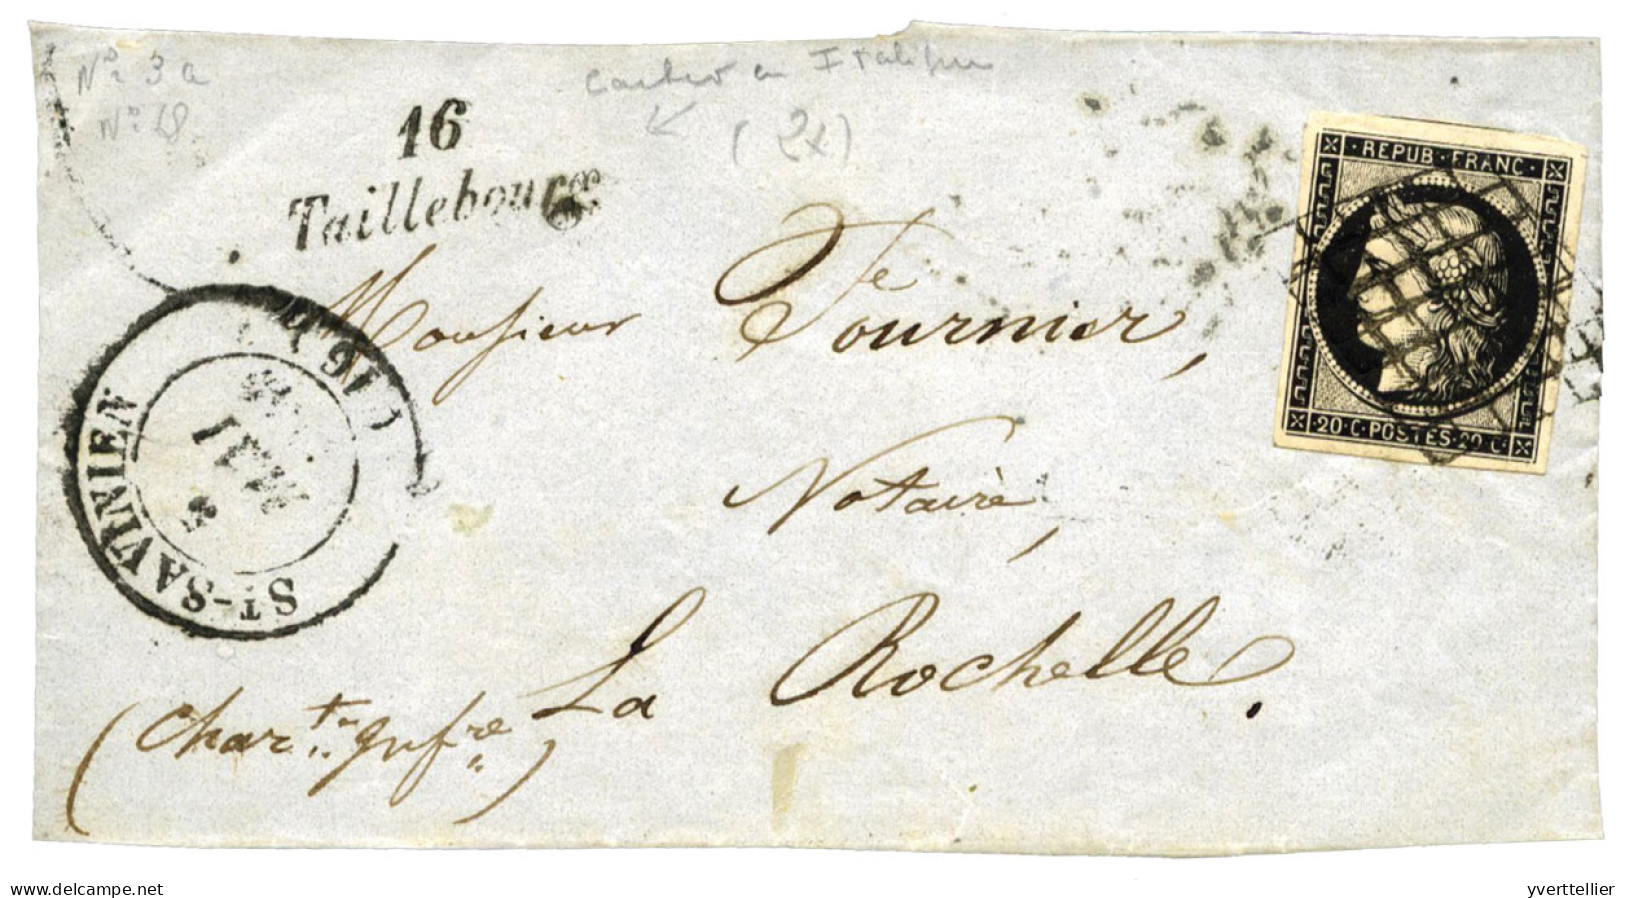 Nº 3 a
Nº 48
Cachet en Italique
(2x)
16
Taillebourg
REPUB·FRANC
20·C·POSTES·20·C·
ST-SAVINIEN
(16)
MAI
Monsieur Fournier,
Notaire,
La Rochelle.
(Char.te infre)
delcampe.net
yverttellier